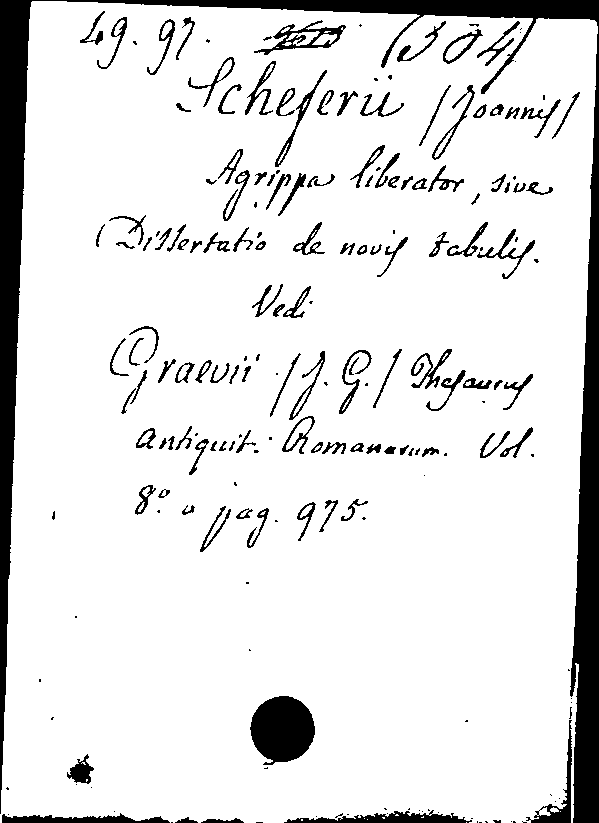 49. 97. (304)
Scheferii /Joannis/
Agrippa liberator, sive
Dissertatio de novis tabulis.
Vedi
Graevii /J. G./ Thesaurus
Antiquit: Romanarum. Vol.
8.° a pag. 975.